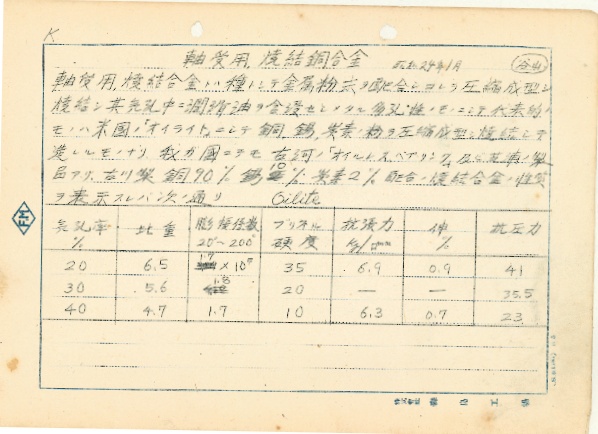 K
軸受用 焼結銅合金 昭和29年1月
軸受用 焼結合金トハ 種々ノ金属粉末ヲ配合シ コレヲ圧縮成型シ
焼結シ 其気孔中ニ潤滑油ヲ含浸セシメタル多孔性ノモノニシテ代表的ノ
モノハ米国ノ「オイライト」ニシテ 銅、錫、炭素ノ粉ヲ圧縮成型シ焼結シテ
造レルモノナリ 我ガ国ニテモ 古河ノ
銅90% 錫 % 炭素2% 配合ノ焼結合金ノ性質
ヲ表示スレバ次ノ通リ Oilite
気孔率 % 比重 膨脹係数 20°~200° ブリネル硬度 抗張力 伸 % 抗圧力
20 6.5 1.7 ×10⁵ 35 6.9 0.9 41
30 5.6 1.8 20 — — 35.5
40 4.7 1.7 10 6.3 0.7 23
FM
株式会社